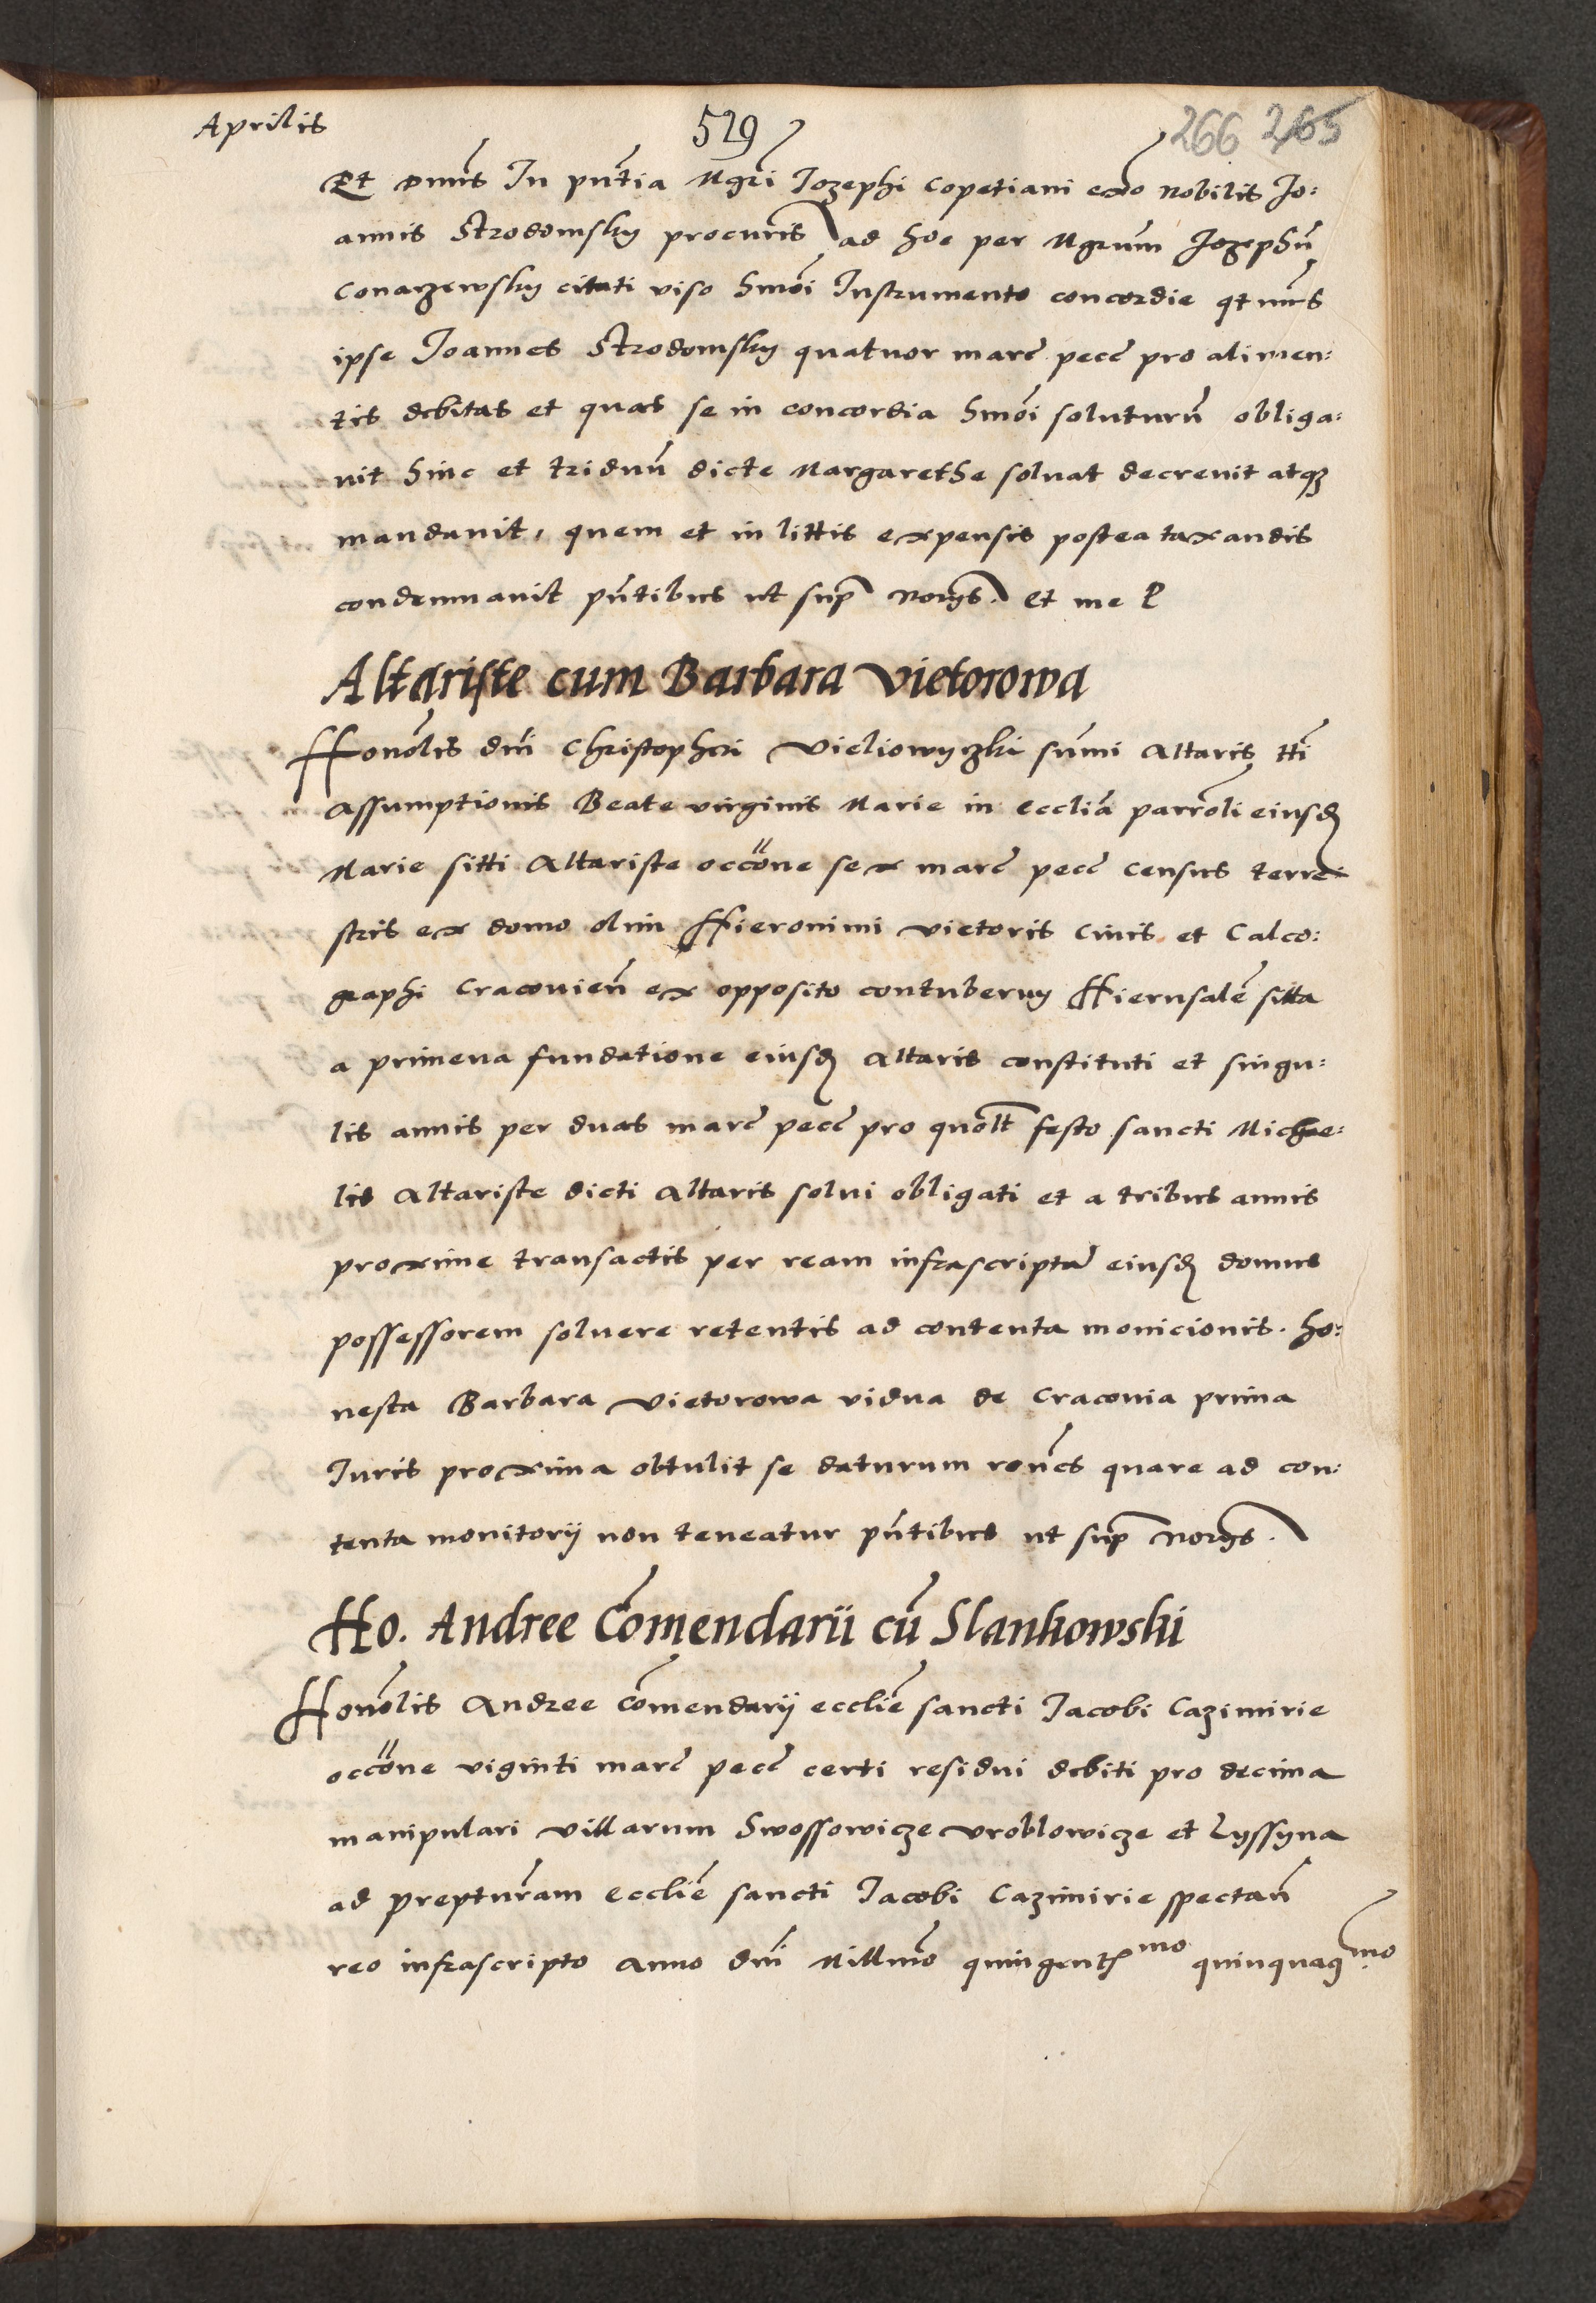 Aprilis 529 266 265
Et Dnus In pntia Mgri Jozephi Copetiani exo Nobilis Jo:
annis Strodomsky procuris ad hoc per Mgrum Jozephū
Conarzewsky citati viso hmoi Instrumento concordie qtnus
ipse Joannes Strodomsky quatuor marc pecc pro alimen:
tis debitas et quas se in concordia hmoi soluturū obliga:
uit hinc et triduū dicte Margarethe soluat decreuit atqz
mandauit, quem et in littis expensis postea taxandis
condemnauit pntibus ut sup Norys. Et me P
Altariste cum Barbara Vietorowa
Honolis dni Christopheri Vieliowyczki sūmi Altaris tti
Assumptionis Beate virginis Marie in ecclia parroli eiusd
Marie sitti Altariste occone sex marc pecc census terre
stris ex domo olim Hieronimi Vietoris Ciuis et Calco:
graphi Cracovien ex opposito contubernij Hierusalē sitta
a primeua fundatione eiusd Altaris constituti et singu:
lis annis per duas marc pecc pro quolt festo sancti Michae:
lis Altariste dicti Altaris solui obligati et a tribus annis
proxime transactis per ream infrascriptā eiusd domus
possessorem soluere retentis ad contenta monicionis. Ho:
nesta Barbara Vietorowa vidua de Cracouia prima
Juris proxima obtulit se daturum rones quare ad con:
tenta monitorij non teneatur pntibus ut sup Norys.
Ho. Andree Cōmendarii cū Slankowski
Honolis Andree Cōmendarij ecclie sancti Jacobi Cazimirie
occone viginti marc pecc certi residui debiti pro decima
manipulari villarum Swossowicze Vroblowicze et Lyssyna
ad prepturam Ecclie sancti Jacobi Cazimirie spectan
reo infrascripto Anno dni Millmo quingentmo quinquagmo